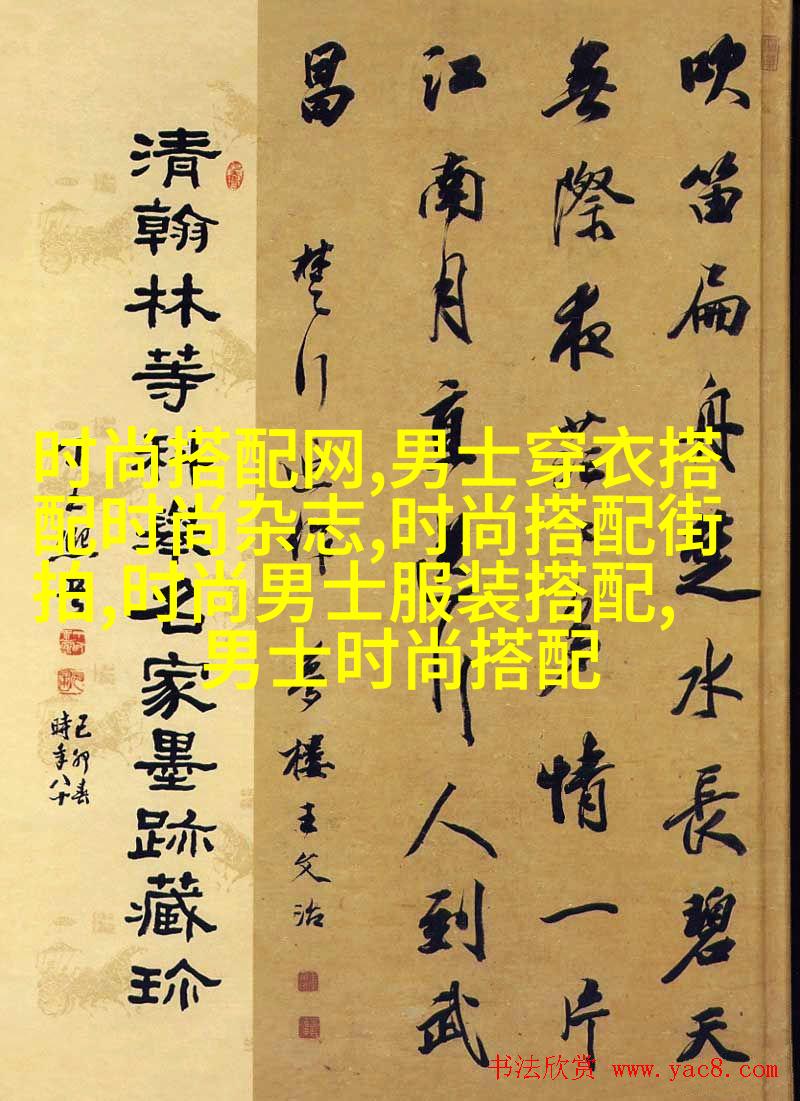 吹笛扁舟楚水長碧天
無際夜茫情一片
江南月直照行人到武
昌
楚行近作 夢樓王文治
清翰林等科名家墨跡藏珍
己卯春
時年八十
时尚搭配网,男士穿衣搭
配时尚杂志,时尚搭配街
拍,时尚男士服装搭配,
男士时尚搭配
书法欣赏 www.yac8.com